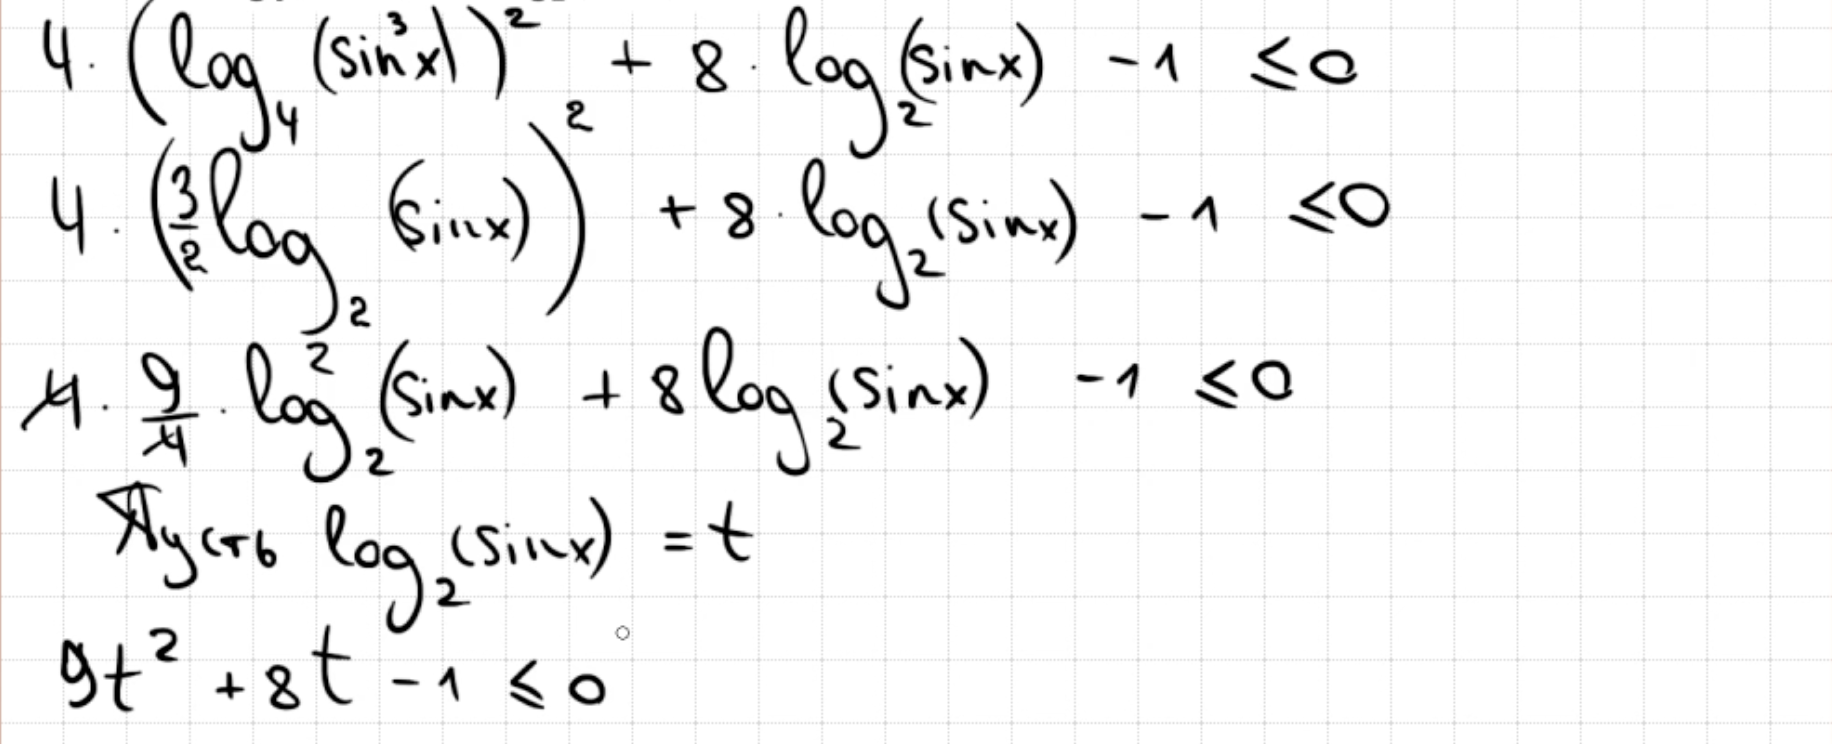 4·(log₄(sin³x))² + 8·log₂(sinx) -1 ≤0
4·(3/2 log₂(sinx))² + 8·log₂(sinx) -1 ≤0
4·9/4·log₂²(sinx) + 8log₂(sinx) -1 ≤0
Пусть log₂(sinx) = t
9t² +8t -1 ≤0